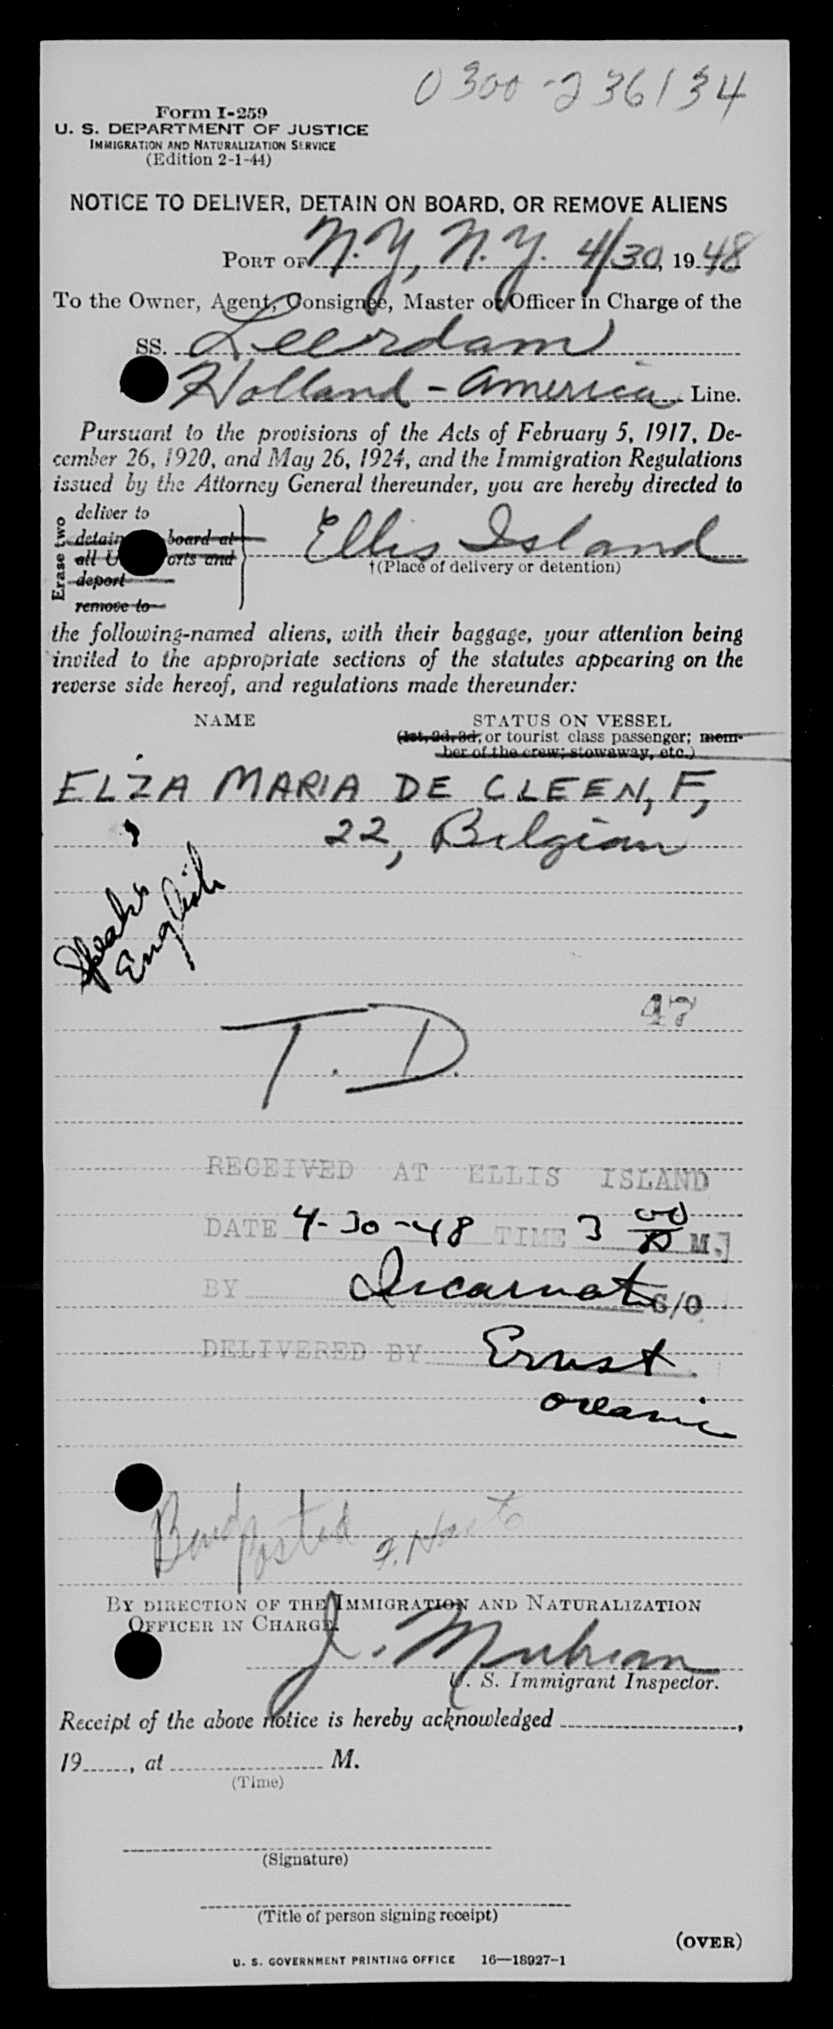 0300-236134
Form I-259
U. S. DEPARTMENT OF JUSTICE
IMMIGRATION AND NATURALIZATION SERVICE
(Edition 2-1-44)
NOTICE TO DELIVER, DETAIN ON BOARD, OR REMOVE ALIENS
PORT OF N.Y., N.Y. 4/30, 1948
To the Owner, Agent, Consignee, Master or Officer in Charge of the
SS. Leerdam
Holland-America Line.
Pursuant to the provisions of the Acts of February 5, 1917, De-
cember 26, 1920, and May 26, 1924, and the Immigration Regulations
issued by the Attorney General thereunder, you are hereby directed to
Erase two
deliver to
detain board at
all U orts and
deport
remove to
Ellis Island
†(Place of delivery or detention)
the following-named aliens, with their baggage, your attention being
invited to the appropriate sections of the statutes appearing on the
reverse side hereof, and regulations made thereunder:
NAME STATUS ON VESSEL
(1st, 2d, 3d, or tourist class passenger; mem-
ber of the crew; stowaway, etc.)
ELIZA MARIA DE CLEEN, F,
22, Belgian
Speaks
English
47
T.D.
RECEIVED AT ELLIS ISLAND
DATE 4-30-48 TIME 3 00 P M.
BY S/O
DELIVERED BY Ernst
Oceanic
Bond posted
BY DIRECTION OF THE IMMIGRATION AND NATURALIZATION
OFFICER IN CHARGE.
J.
U. S. Immigrant Inspector.
Receipt of the above notice is hereby acknowledged ,
19 , at M.
(Time)
(Signature)
(Title of person signing receipt)
(OVER)
U. S. GOVERNMENT PRINTING OFFICE 16—18927-1